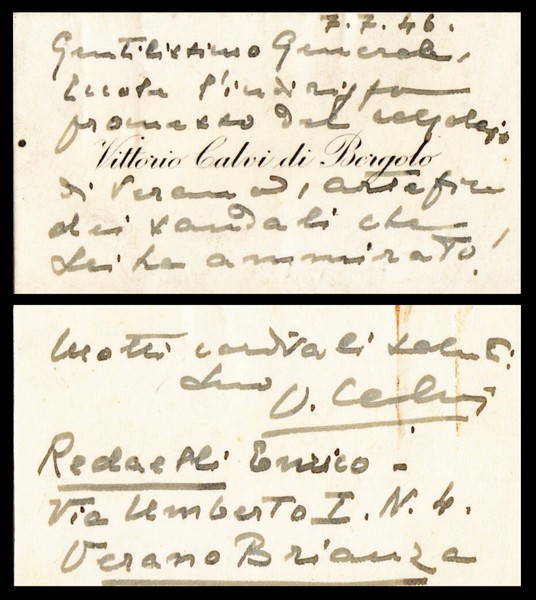 7.7.46.
Gentilissimo Generale,
Eccole l'indirizzo
promesso del calzolaio
Vittorio Calvi di Bergolo
di Verano, artefice
dei sandali che
Lei ha ammirato!
Molti cordiali saluti.
Suo
V. Calvi
Redaelli Enrico -
Via Umberto I. N. 4.
Verano Brianza